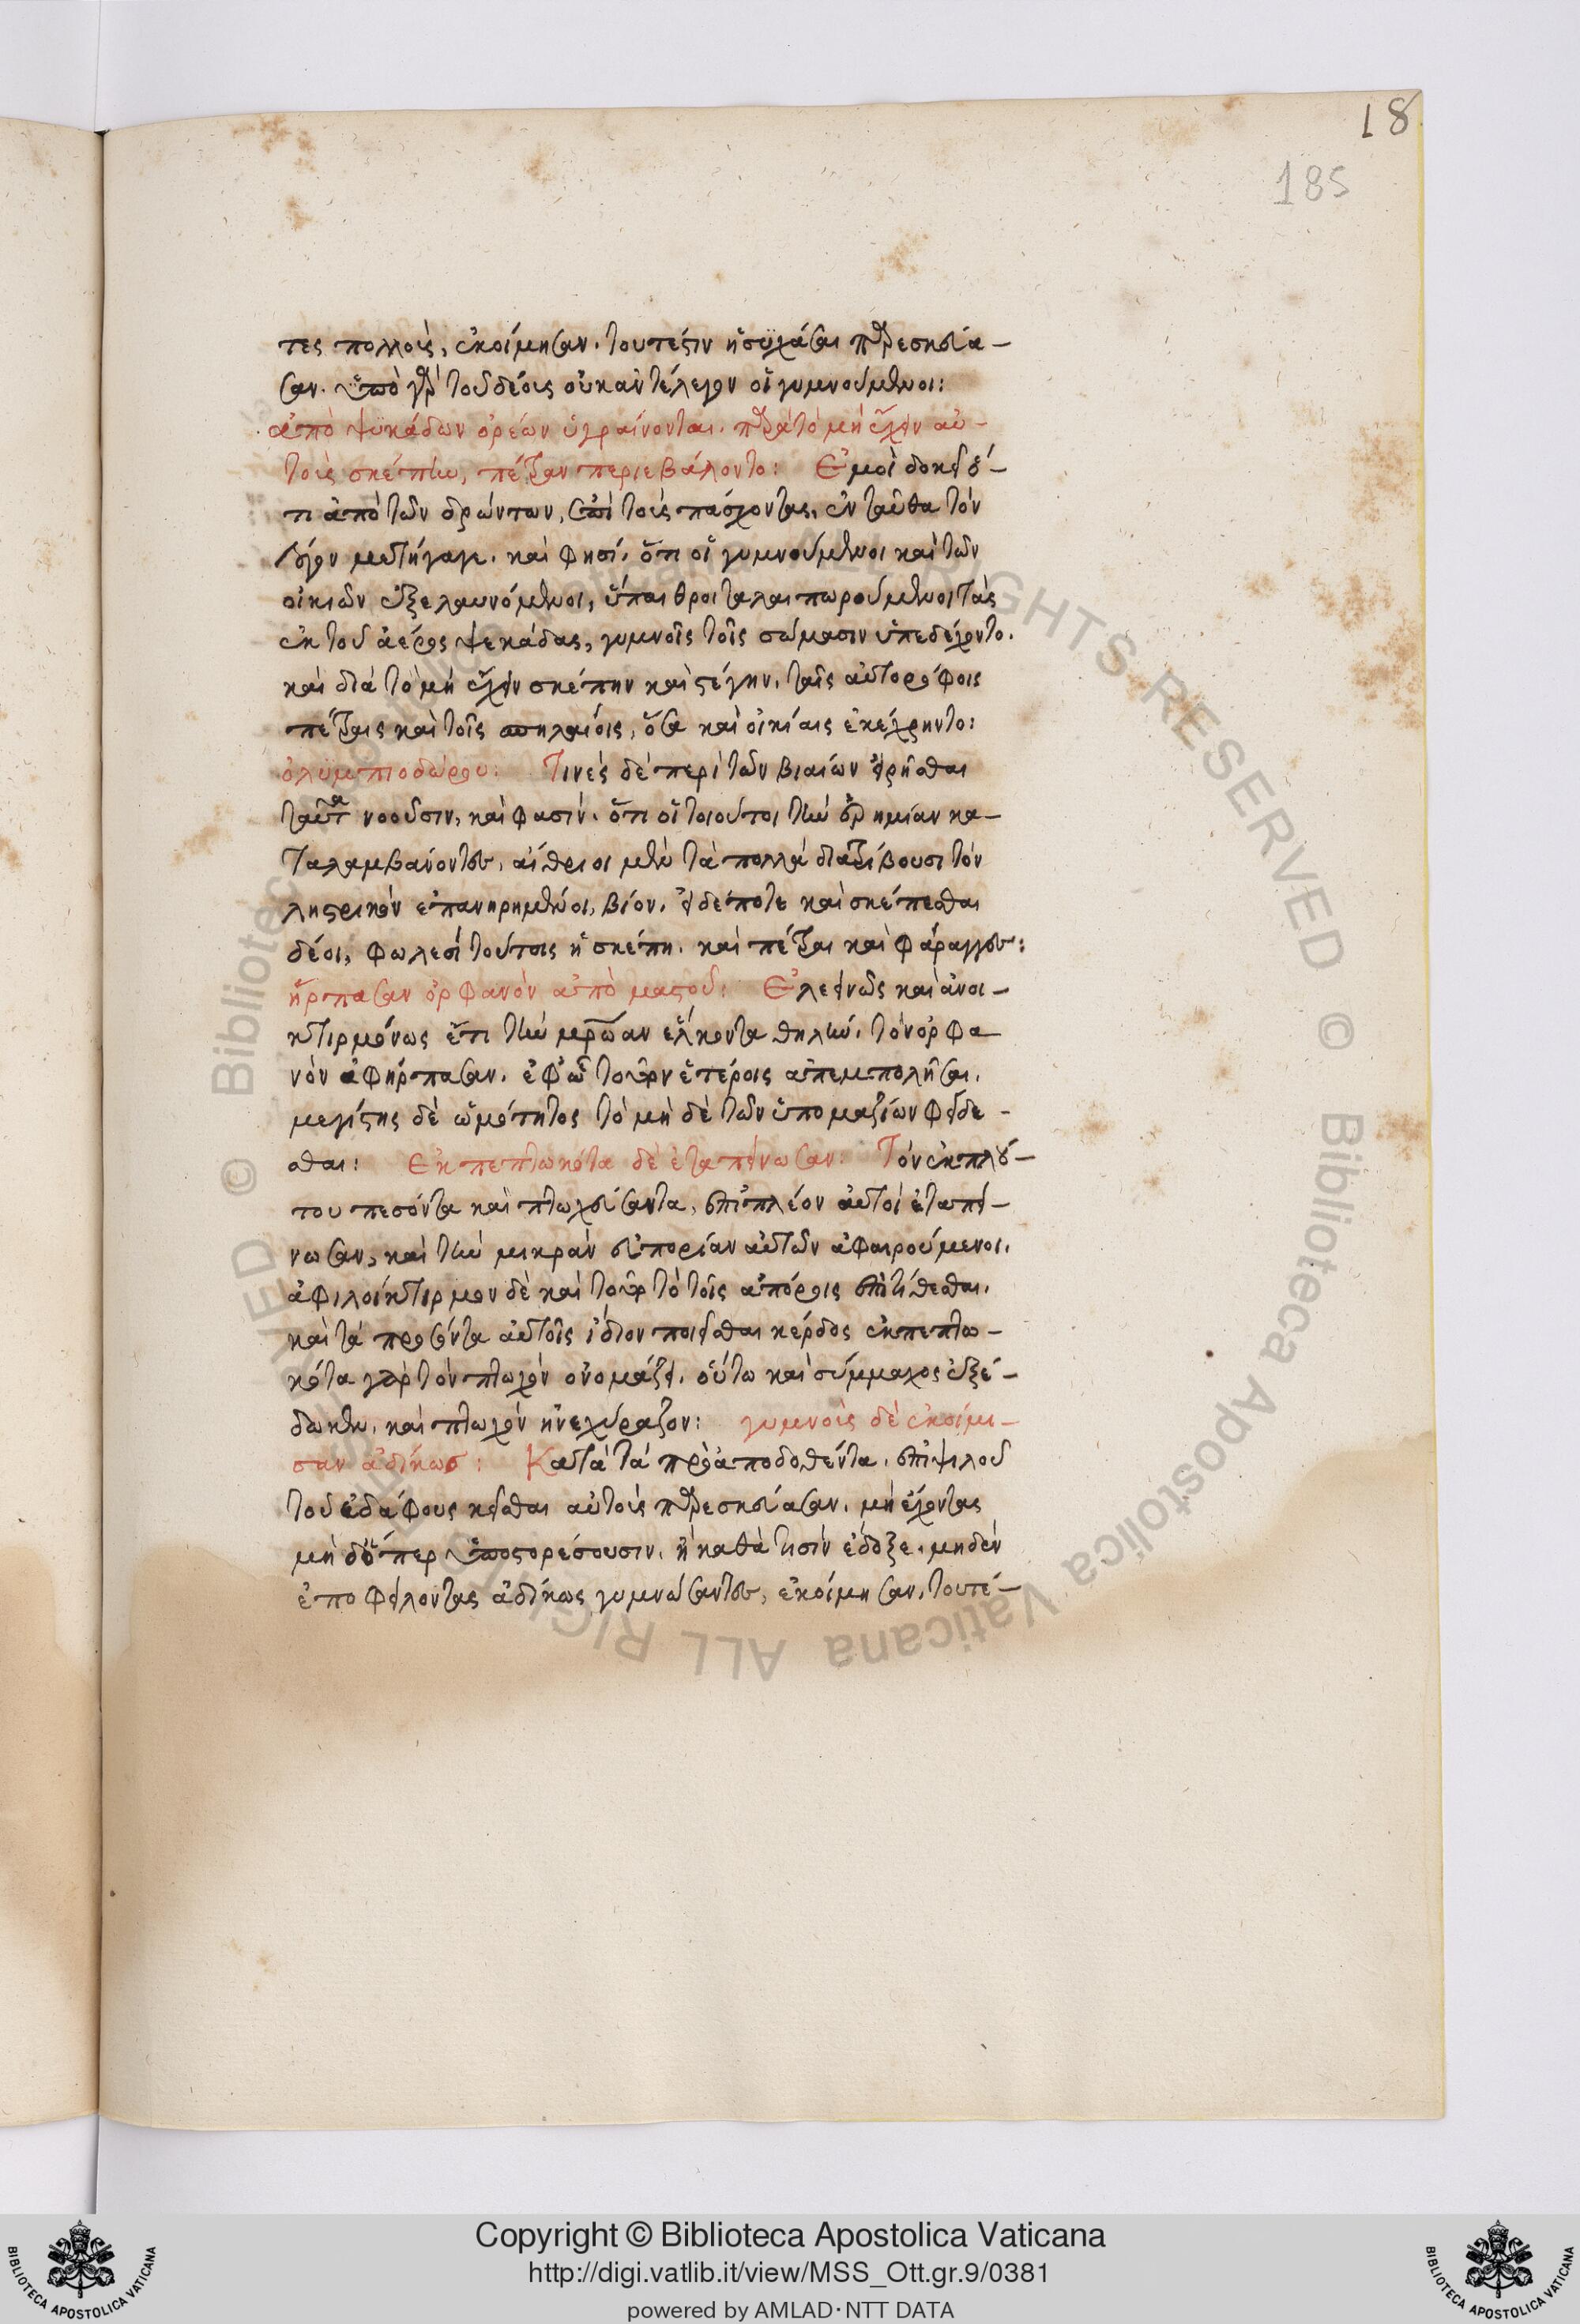 18
185
τες πολλοὺς, ἐκοίμησαν. τουτέστιν ἡσυχάσαι παρεσκεύα-
σαν. ὑπὸ γὰρ τοῦ δέους οὐκ ἀντέλεγον οἱ γυμνούμενοι:
ἀπὸ ψεκάδων ὀρέων ὑγραίνονται. παρὰ τὸ μὴ ἔχειν αὐ-
τοὺς σκέπην, πέτραν περιεβάλοντο: Ἐμοὶ δοκεῖ ὅ-
τι ἀπὸ τῶν δρώντων, ἐπὶ τοὺς πάσχοντας, ἐνταῦθα τὸν
λόγον μετήγαγε. καὶ φησί, ὅτι οἱ γυμνούμενοι καὶ τῶν
οἰκιῶν ἐξελαυνόμενοι, ὕπαιθροι ταλαιπωρούμενοι τὰς
ἐκ τοῦ ἀέρος ψεκάδας, γυμνοῖς τοῖς σώμασιν ὑπεδέχοντο.
καὶ διὰ τὸ μὴ ἔχειν σκέπην καὶ στέγην, ταῖς αὐτορόφοις
πέτραις καὶ τοῖς σπηλαίοις, ὅσα καὶ οἰκίαις ἐκέχρηντο:
ὀλυμπιοδώρου: Τινὲς δὲ περὶ τῶν βιαίων εἰρῆσθαι
ταῦτα νοοῦσιν, καὶ φασίν. ὅτι οἱ τοιοῦτοι τὴν ἐρημίαν κα-
ταλαμβάνοντες, αἴθριοι μὲν τὰ πολλὰ διατρίβουσι τὸν
ληστρικὸν ἐπανηρημένοι, βίον. εἰ δέ ποτε καὶ σκέπεσθαι
δέοι, φωλεοὶ τούτοις ἡ σκέπη. καὶ πέτραι καὶ φάραγγες:
ἥρπασαν ὀρφανὸν ἀπὸ μαστοῦ: Ἐλεεινῶς καὶ ἀνοι-
κτιρμόνως ἔτι τὴν μητρῴαν ἕλκοντα θηλὴν, τὸν ὀρφα
νὸν ἀφήρπασαν. ἐφ' ᾧ τοῦτον ἑτέροις ἀπεμπολῆσαι.
μεγίστης δὲ ὠμότητος τὸ μὴ δὲ τῶν ὑπομαζίων φείδε-
σθαι: Ἐκπεπτωκότα δὲ ἐταπείνωσαν: Τὸν ἐκ πλού-
του πεσόντα καὶ πτωχεύσαντα, ἐπὶ πλέον αὐτοὶ ἐταπεί-
νωσαν, καὶ τὴν μικρὰν εὐπορίαν αὐτῶν ἀφαιρούμενοι.
ἀφιλοίκτιρμον δὲ καὶ τοῦτο τὸ τοῖς ἀπόροις ἐπιτίθεσθαι.
καὶ τὰ προσόντα αὐτοῖς ἴδιον ποιεῖσθαι κέρδος ἐκπεπτω-
κότα γὰρ τὸν πτωχὸν ὀνομάζει. οὕτω καὶ σύμμαχος ἐξέ-
δωκεν, καὶ πτωχὸν ἠνεχύραζον: γυμνοὺς δὲ ἐκοίμι-
σαν ἀδίκως: Κατὰ τὰ προαποδοθέντα, ἐπὶ ψιλοῦ
τοῦ ἐδάφους κεῖσθαι αὐτοὺς παρεσκεύασαν. μὴ ἔχοντας
μὴ δ' ὅπερ ὑποστορέσουσιν. ἢ καθά τισιν ἔδοξε, μηδὲν
ἐποφείλοντας ἀδίκως γυμνώσαντες, ἐκοίμησαν, τουτέ-
Copyright © Biblioteca Apostolica Vaticana
http://digi.vatlib.it/view/MSS_Ott.gr.9/0381
powered by AMLAD·NTT DATA